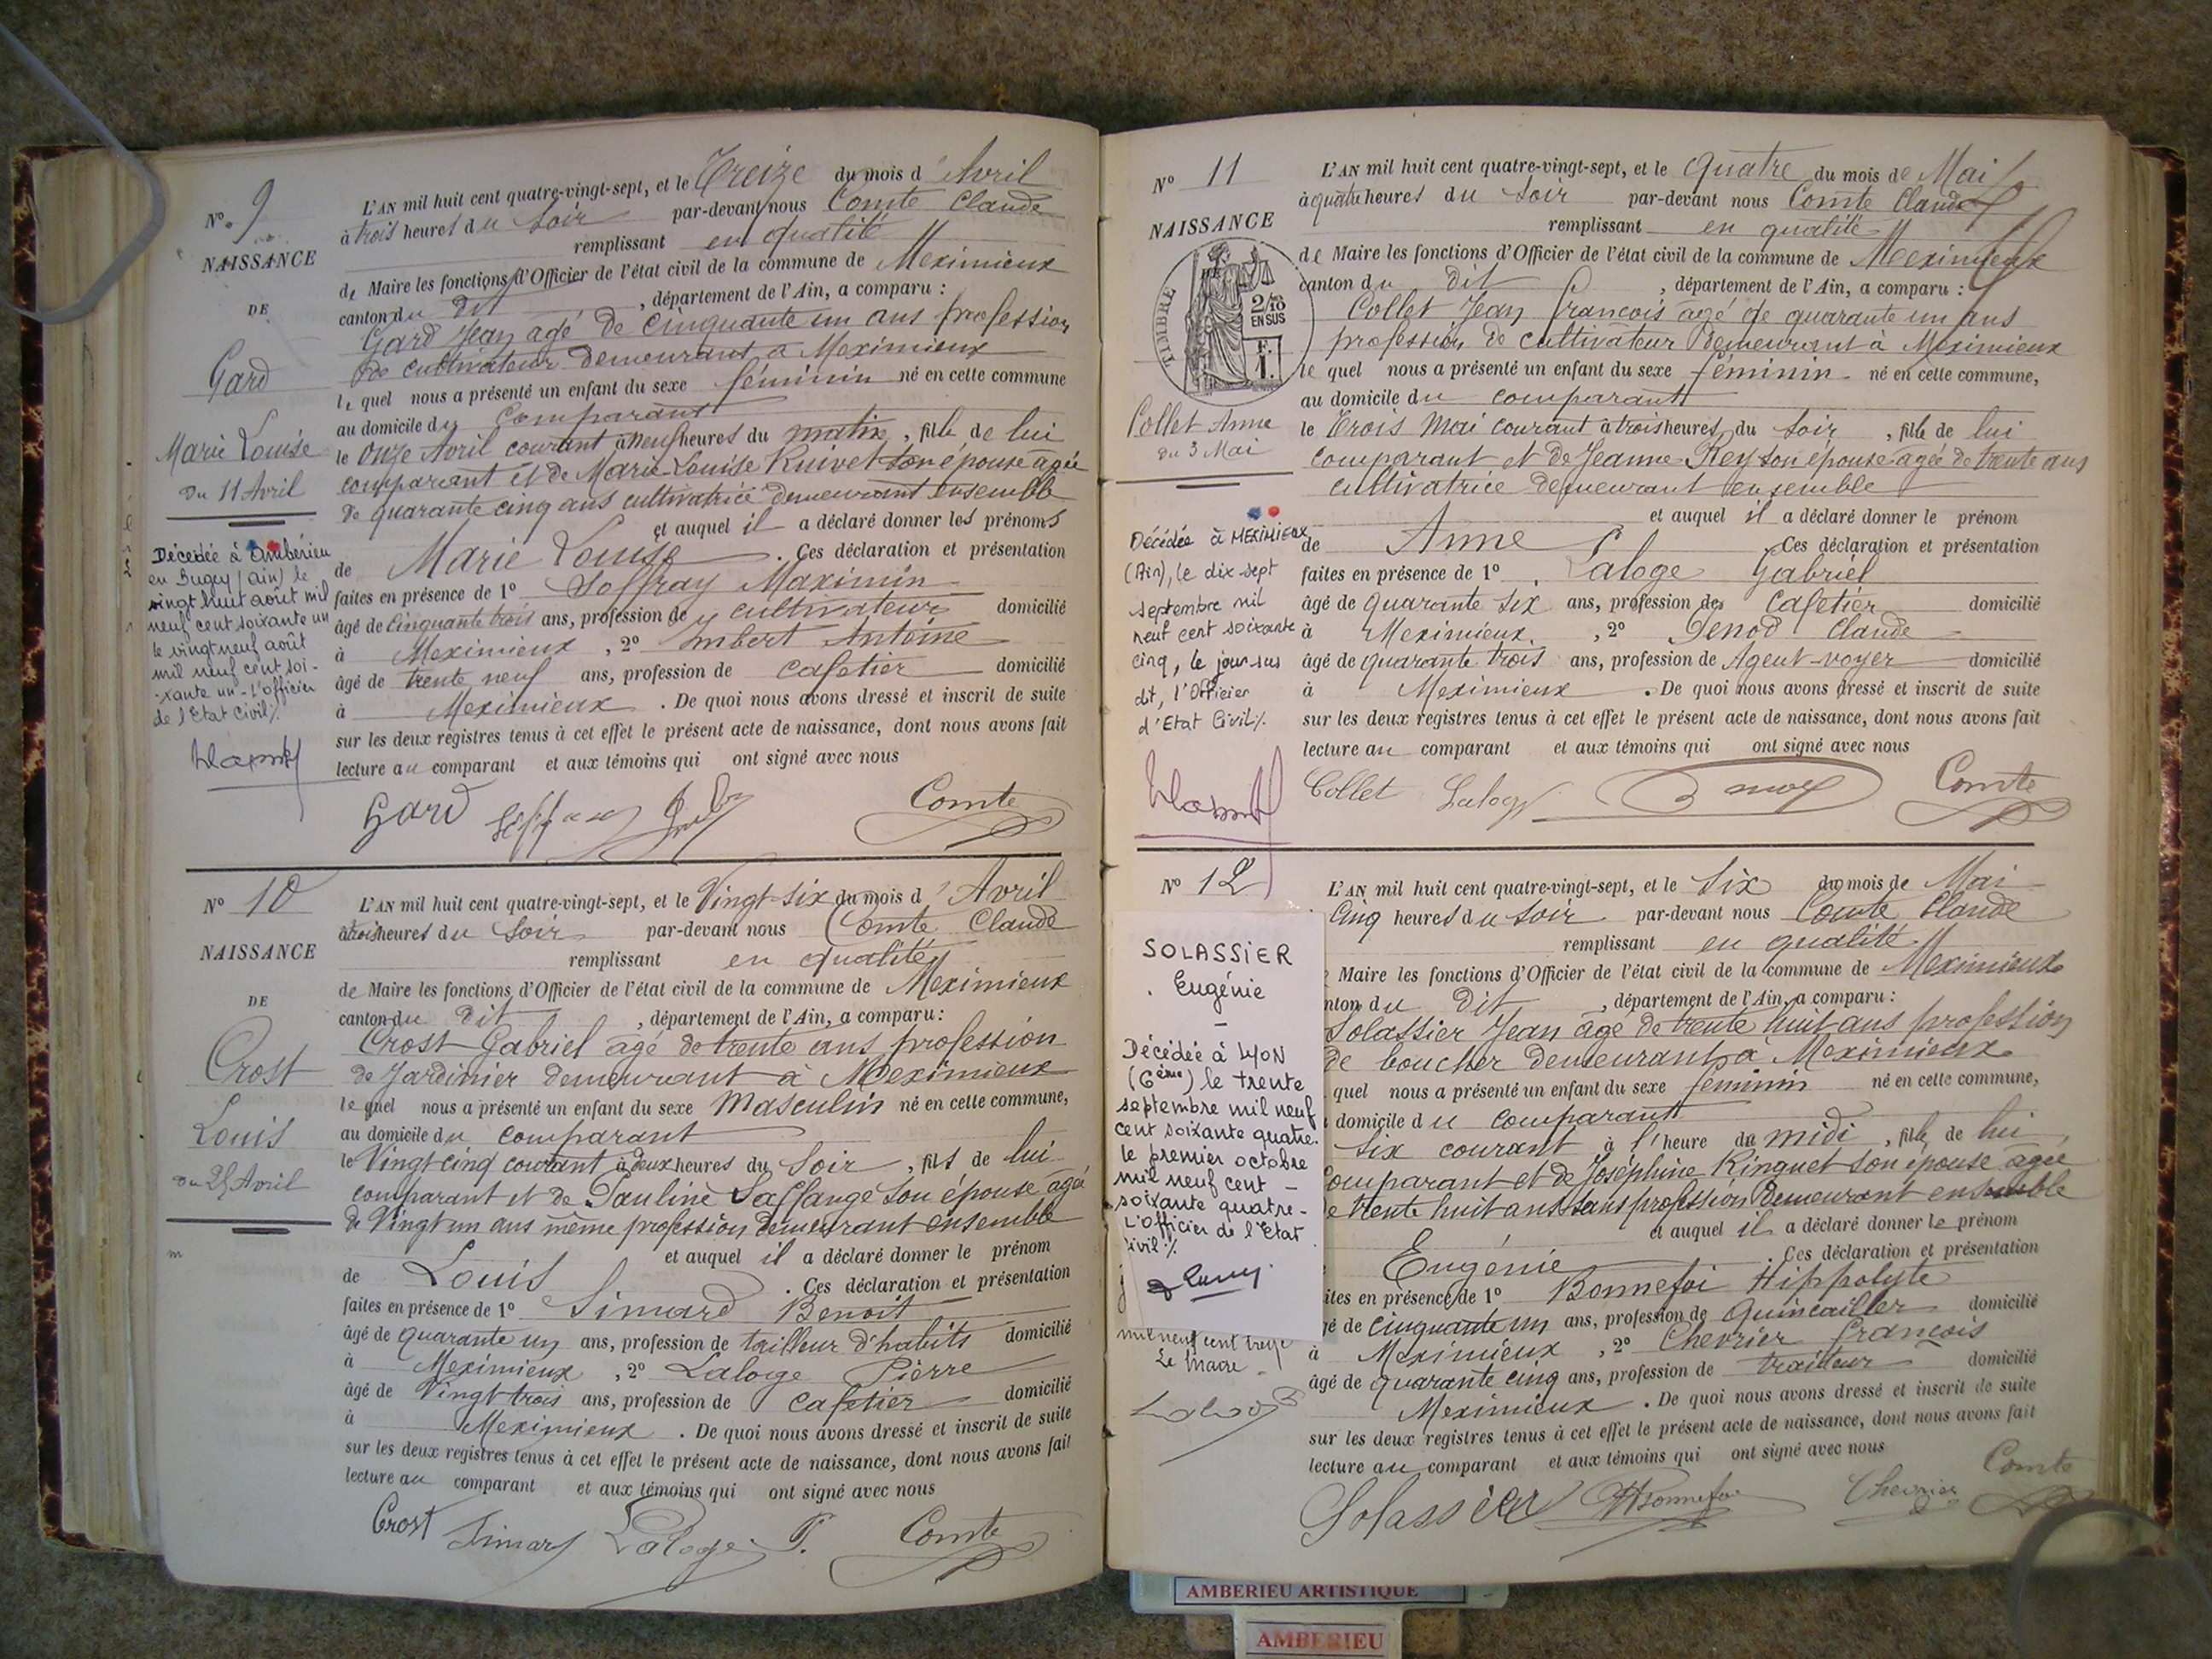 N° 9
NAISSANCE
DE
Gard
Marie Louise
du 11 Avril
Décédée à Ambérieu
en Bugey (Ain) le
vingt huit août mil
neuf cent soixante un
le vingt neuf août
mil neuf cent soi-
-xante un - L'officier
de l'Etat Civil ./.
L'AN mil huit cent quatre-vingt-sept, et le Treize du mois d'Avril
à trois heures du soir par-devant nous Comte Claude
remplissant en qualité
de Maire les fonctions d'Officier de l'état civil de la commune de Meximieux
canton du dit, département de l'Ain, a comparu :
Gard Jean agé de cinquante un ans profession
de cultivateur demeurant a Meximieux
le quel nous a présenté un enfant du sexe féminin né en cette commune
au domicile du comparant
le onze Avril courant à neuf heures du matin, fille de lui
comparant et de Marie-Louise Ruivet son épouse agée
de quarante cinq ans cultivatrice demeurant ensemble
et auquel il a déclaré donner les prénoms
de Marie Louise. Ces déclaration et présentation
faites en présence de 1° Soffray Maximin
âgé de cinquante trois ans, profession de cultivateur domicilié
à Meximieux, 2° Imbert Antoine
âgé de trente neuf ans, profession de cafetier domicilié
à Meximieux. De quoi nous avons dressé et inscrit de suite
sur les deux registres tenus à cet effet le présent acte de naissance, dont nous avons fait
lecture au comparant et aux témoins qui ont signé avec nous
Gard Comte
N° 10
NAISSANCE
DE
Crost
Louis
du 25 Avril
L'AN mil huit cent quatre-vingt-sept, et le Vingt-six du mois d'Avril
à trois heures du soir par-devant nous Comte Claude
remplissant en qualité
de Maire les fonctions d'Officier de l'état civil de la commune de Meximieux
canton du dit, département de l'Ain, a comparu :
Crost Gabriel agé de trente ans profession
de Jardinier demeurant à Meximieux
le quel nous a présenté un enfant du sexe Masculin né en cette commune,
au domicile du comparant
le Vingt cinq courant à deux heures du soir, fils de lui
comparant et de Pauline son épouse agée
de Vingt un ans même profession demeurant ensemble
et auquel il a déclaré donner le prénom
de Louis. Ces déclaration et présentation
faites en présence de 1° Simard Benoit
âgé de quarante un ans, profession de tailleur d'habits domicilié
à Meximieux, 2° Laloge Pierre
âgé de Vingt trois ans, profession de cafetier domicilié
à Meximieux. De quoi nous avons dressé et inscrit de suite
sur les deux registres tenus à cet effet le présent acte de naissance, dont nous avons fait
lecture au comparant et aux témoins qui ont signé avec nous
Crost Simard Laloge P. Comte
N° 11
NAISSANCE
TIMBRE
2/10
EN SUS
F.
1.
Collet Anne
du 3 Mai
Décédée à MEXIMIEUX
(Ain), le dix-sept
septembre mil
neuf cent soixante
cinq, le jour sus
dit, l'Officier
d'Etat Civil ./.
L'AN mil huit cent quatre-vingt-sept, et le quatre du mois de Mai
à quatre heures du soir par-devant nous Comte Claude
remplissant en qualité
de Maire les fonctions d'Officier de l'état civil de la commune de Meximieux
canton du dit, département de l'Ain, a comparu :
Collet Jean francois agé de quarante un ans
profession de cultivateur demeurant à Meximieux
le quel nous a présenté un enfant du sexe féminin né en cette commune,
au domicile du comparant
le Trois Mai courant à trois heures du soir, fille de lui
comparant et de Jeanne Rey son épouse agée de trente ans
cultivatrice demeurant ensemble
et auquel il a déclaré donner le prénom
de Anne. Ces déclaration et présentation
faites en présence de 1° Laloge Gabriel
âgé de quarante six ans, profession de cafetier domicilié
à Meximieux, 2° Penod Claude
âgé de quarante trois ans, profession de Agent-voyer domicilié
à Meximieux. De quoi nous avons dressé et inscrit de suite
sur les deux registres tenus à cet effet le présent acte de naissance, dont nous avons fait
lecture au comparant et aux témoins qui ont signé avec nous
Collet Laloge Comte
N° 12
SOLASSIER
Eugénie
Décédée à LYON
(6ème) le trente
septembre mil neuf
cent soixante quatre.
le premier octobre
mil neuf cent
soixante quatre -
L'officier de l'Etat
Civil ./.
mil neuf cent treize
Le Maire
L'AN mil huit cent quatre-vingt-sept, et le six du mois de Mai
cinq heures du soir par-devant nous Comte Claude
remplissant en qualité
Maire les fonctions d'Officier de l'état civil de la commune de Meximieux
nton du dit, département de l'Ain, a comparu :
Solassier Jean agé de trente huit ans profession
de boucher demeurant à Meximieux
quel nous a présenté un enfant du sexe féminin né en cette commune,
domicile du comparant
six courant à l'heure de midi, fille de lui
comparant et de Joséphine Ringuet son épouse agée
de trente huit ans sans profession demeurant ensemble
et auquel il a déclaré donner le prénom
Eugénie. Ces déclaration et présentation
ites en présence de 1° Bonnefoi Hippolyte
gé de cinquante un ans, profession de Quincailler domicilié
à Meximieux, 2° Chevrier françois
âgé de quarante cinq ans, profession de traiteur domicilié
Meximieux. De quoi nous avons dressé et inscrit de suite
sur les deux registres tenus à cet effet le présent acte de naissance, dont nous avons fait
lecture au comparant et aux témoins qui ont signé avec nous
Solassier Bonnefoi Chevrier Comte
AMBERIEU ARTISTIQUE
AMBERIEU